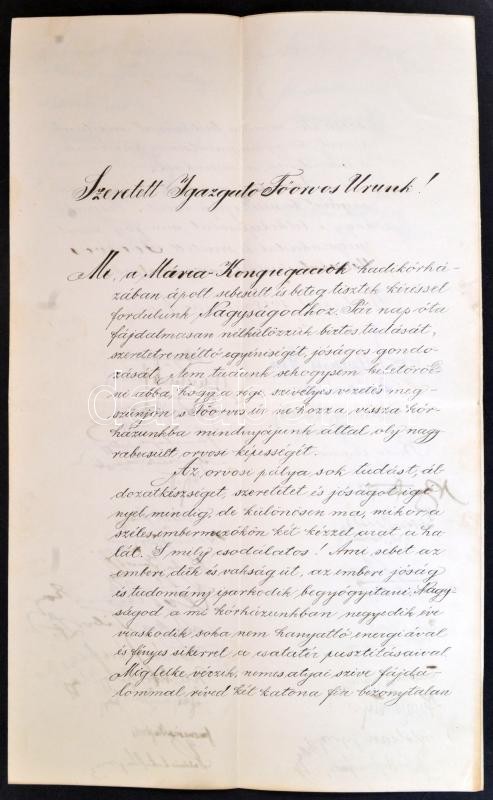 Szeretett Igazgató Főorvos Urunk!
Mi, a Mária-Kongregációk hadikórhá-
zában ápolt sebesült és beteg tisztek kéréssel
fordulunk Nagyságodhoz. Pár nap óta
fájdalmasan nélkülözzük biztos tudását,
szeretetreméltó egyéniségét, jóságos gondo-
zását. Nem tudunk sehogysem beletörőd-
ni abba, hogy a régi, szívélyes vezetés meg-
szünjön s Főorvos úr ne hozza vissza kór-
házunkba mindnyájunk által oly nagy-
rabecsült orvosi képességét.
Az orvosi pálya sok tudást, ál-
dozatkészséget, szeretetet és jóságot igé-
nyel mindig; de különösen ma, mikor a
széles embermezőkön két kézzel arat a ha-
lál. S mily csodálatos! Ami sebet az
emberi düh és vadság üt, az emberi jóság
és tudomány iparkodik begyógyítani. Nagy-
ságod a mi kórházunkban negyedik éve
viaskodik soha nem hanyatló energiával
és fényes sikerrel a csatatér pusztításaival
Míg lelke vérzik, nemes atyai szíve fájda-
lommal réved két katona fia bizonytalan